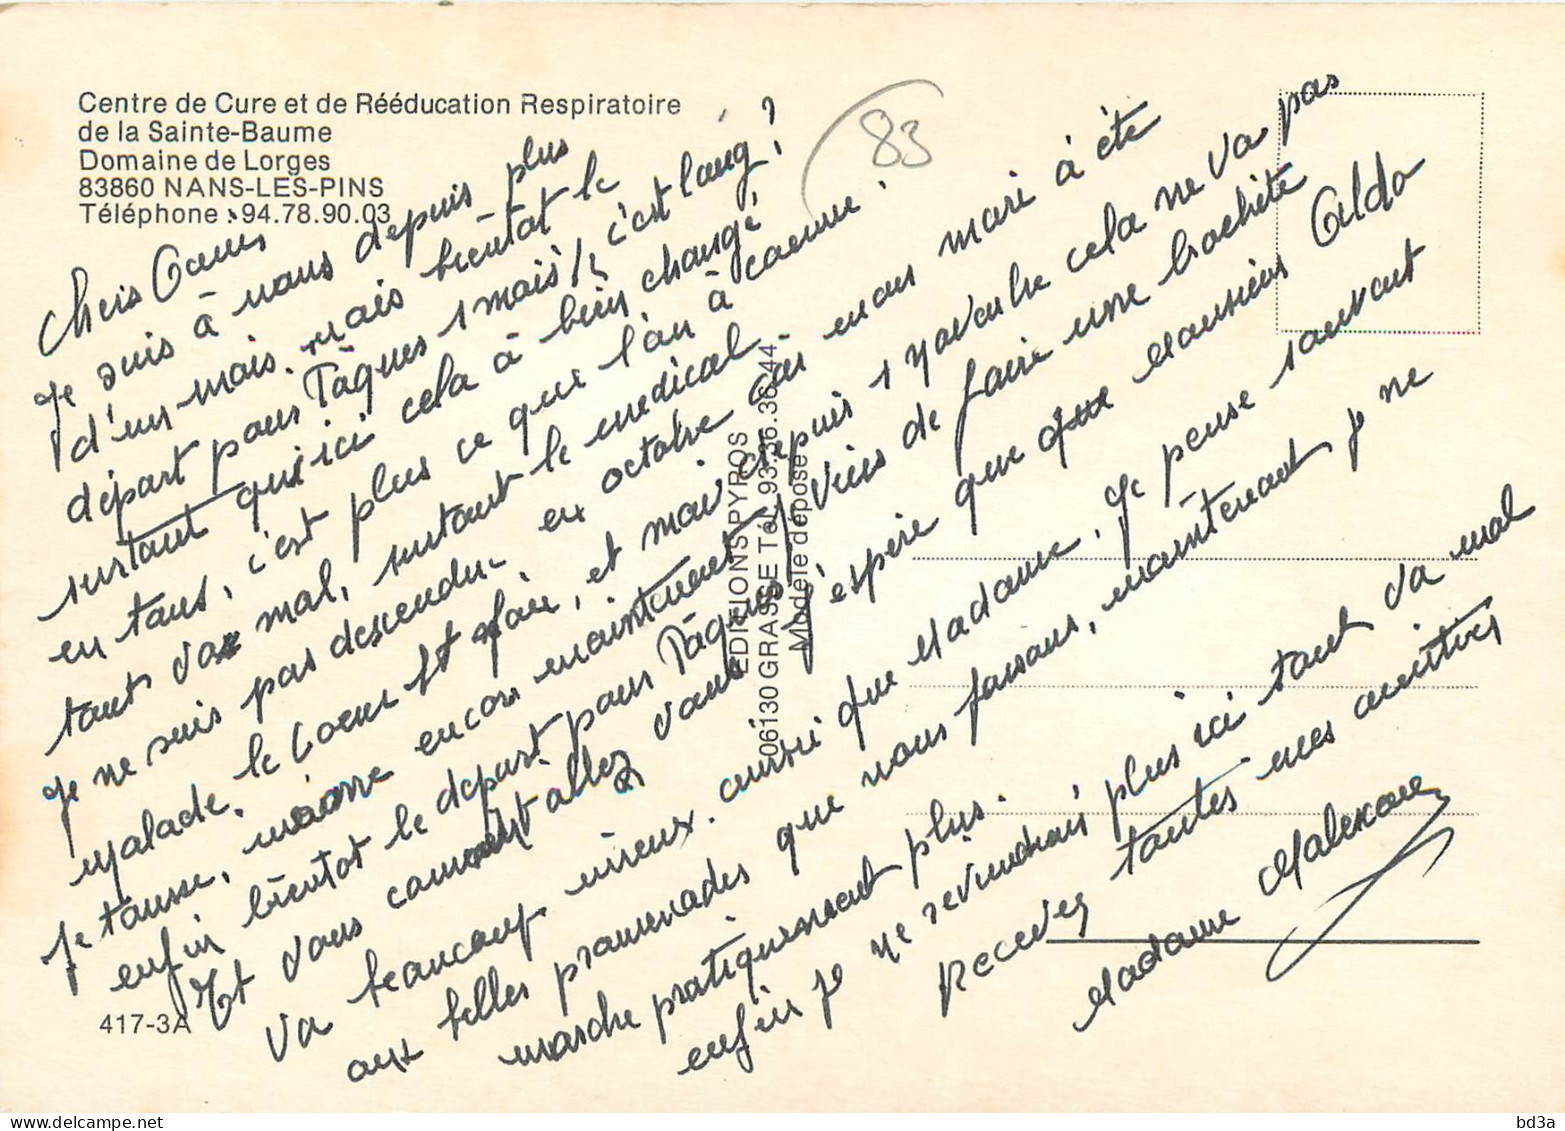 Centre de Cure et de Rééducation Respiratoire
de la Sainte-Baume
Domaine de Lorges
83860 NANS-LES-PINS
Téléphone : 94.78.90.03
83
Chers
Je suis à nans depuis plus
d'un mois. mais bientôt le
départ pour Pâques 1 mois 1/2 c'est long ?
surtout qu'ici cela à bien changé
en tout, c'est plus ce que l'on à connu !
tout va mal, surtout le medical
Je ne suis pas descendu en octobre car mon mari à été
malade. le coeur et foie, et moi depuis 1 novembre cela ne va pas
Je tousse, encore maintenant je viens de faire une brochite
enfin bientot le départ pour Pâques j'espère que Monsieur Aldo
Et vous comment allez vous
va beaucoup mieux. ainsi que Madame. Je pense souvent
aux belles promenades que nous faisons, maintenant je ne
marche pratiquement plus.
enfin je ne reviendrai plus ici tout va mal
Recevez toutes mes amitiés
Madame
EDITIONS PYROS
06130 GRASSE Tél. 93.36.36.44
Modèle déposé
417-3A
bd3a